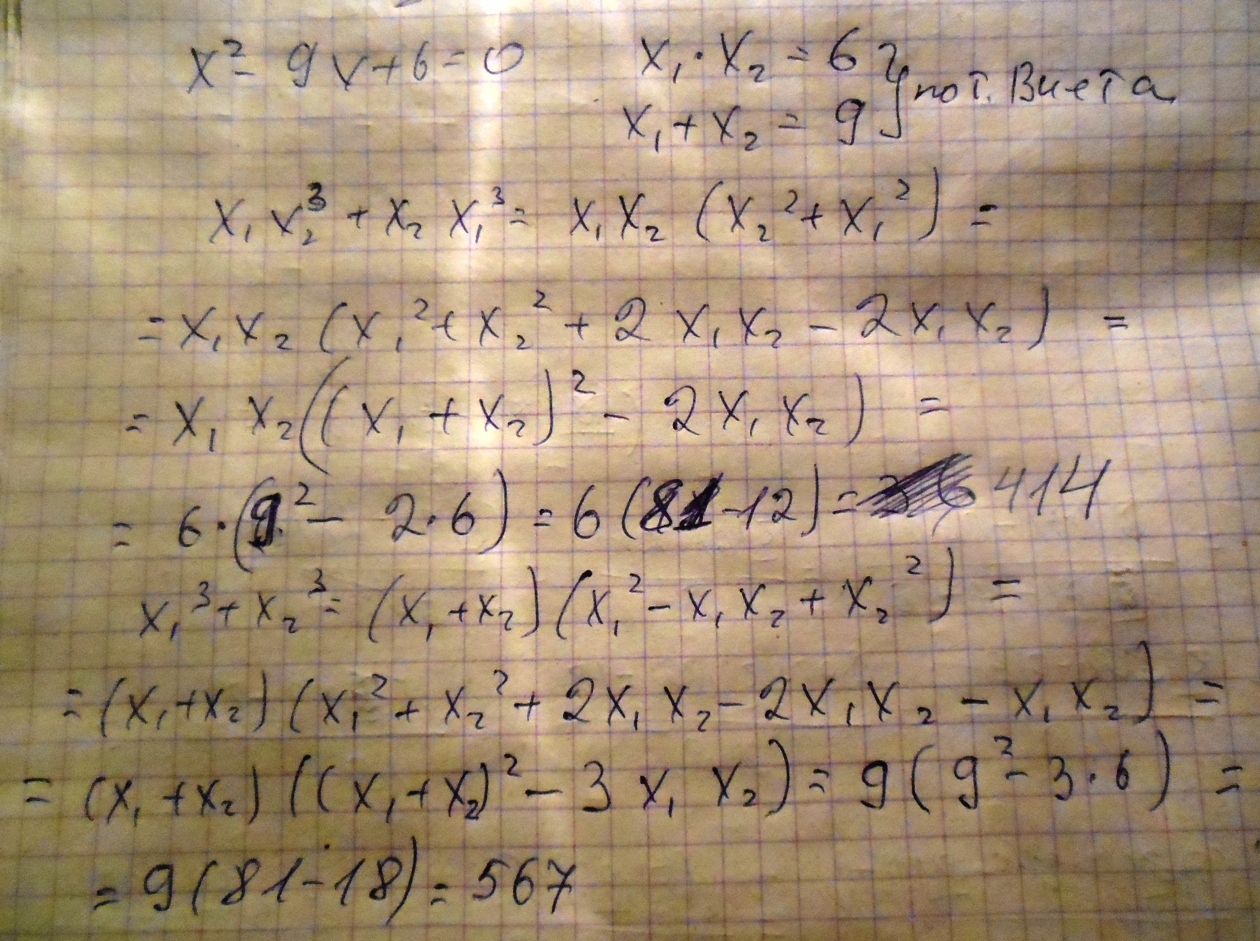 x² - 9x + 6 = 0
x₁ · x₂ = 6
x₁ + x₂ = 9 } по т. Виета
x₁ x₂³ + x₂ x₁³ = x₁ x₂ (x₂² + x₁²) =
= x₁ x₂ (x₁² + x₂² + 2 x₁ x₂ - 2x₁ x₂) =
= x₁ x₂ ((x₁ + x₂)² - 2 x₁ x₂) =
= 6 · (9² - 2·6) = 6 (81 - 12) = 414
x₁³ + x₂³ = (x₁ + x₂) (x₁² - x₁ x₂ + x₂²) =
= (x₁ + x₂) (x₁² + x₂² + 2x₁ x₂ - 2x₁ x₂ - x₁ x₂) =
= (x₁ + x₂) ((x₁ + x₂)² - 3 x₁ x₂) = 9 (9² - 3·6) =
= 9 (81 - 18) = 567